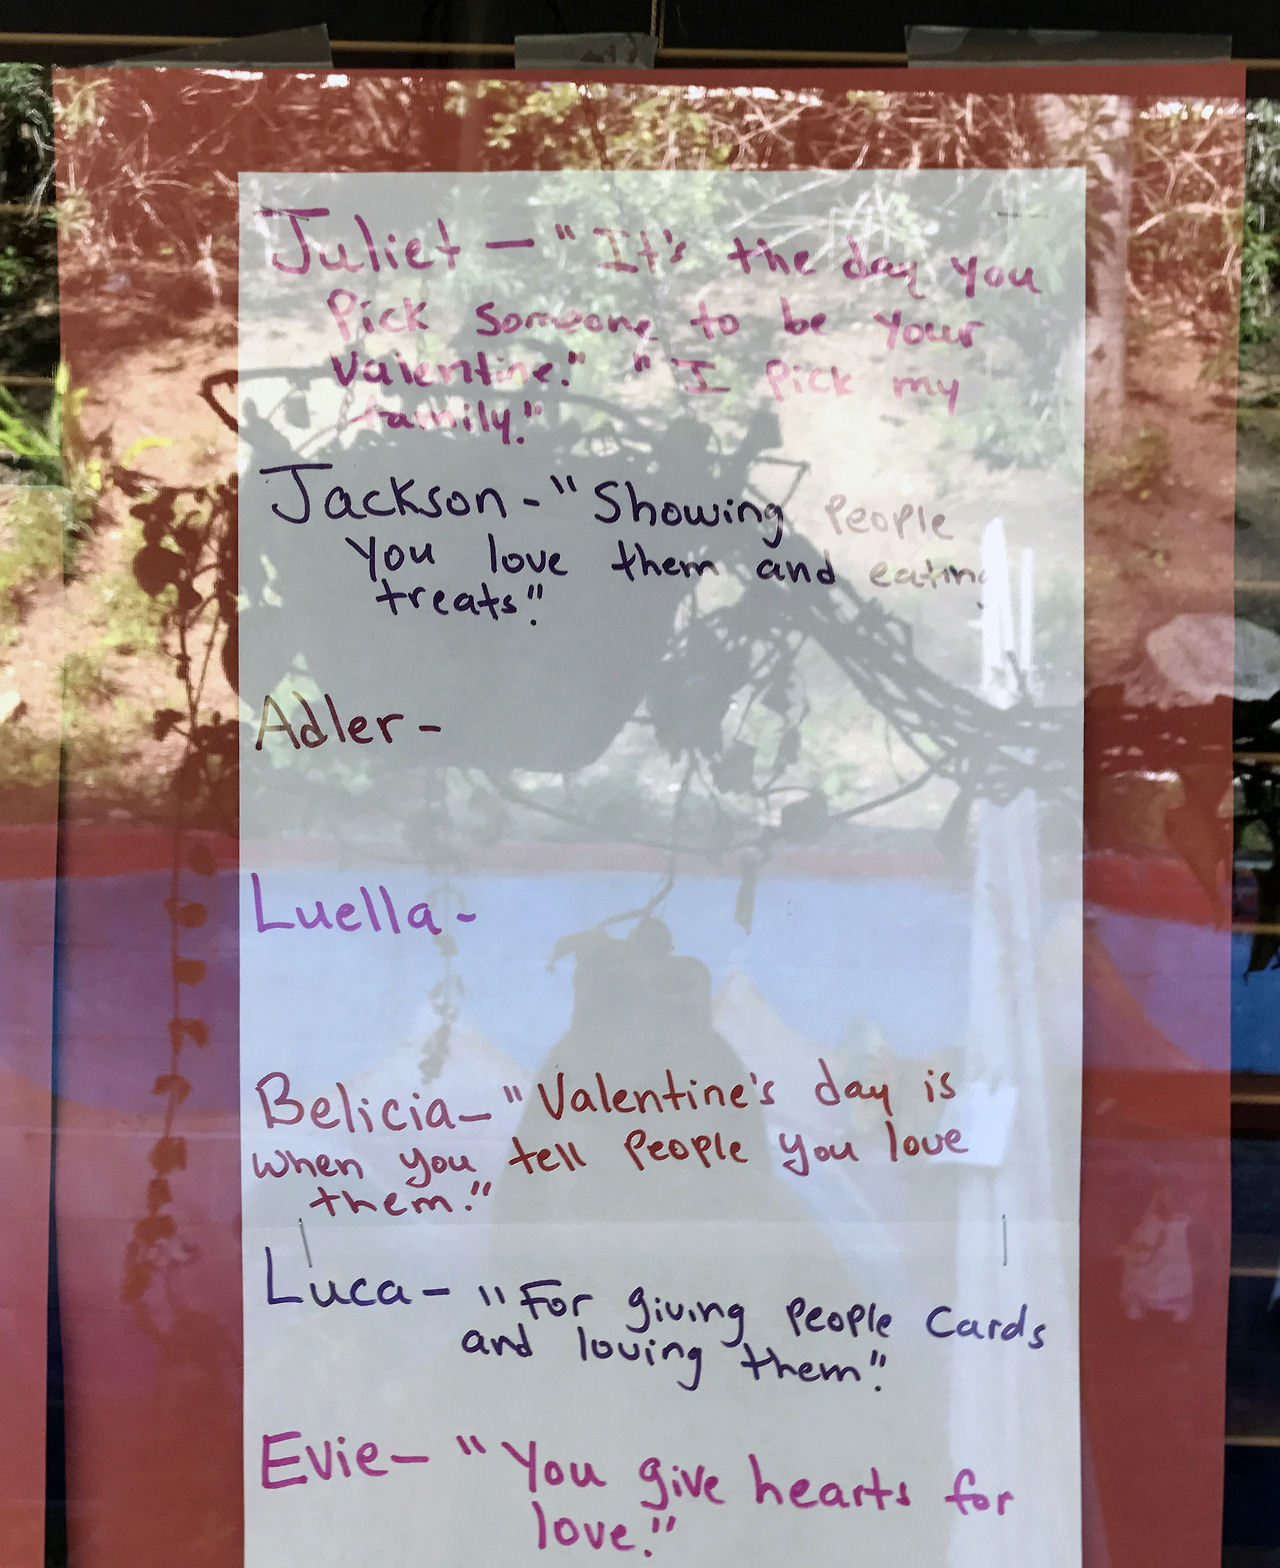 Juliet - "It's the day you
Pick someone to be your
Valentine." "I pick my
family."
Jackson - "Showing People
you love them and eating
treats."
Adler -
Luella -
Belicia - "Valentine's day is
when you tell People you love
them."
Luca - "For giving people Cards
and loving them."
Evie - "You give hearts for
love."